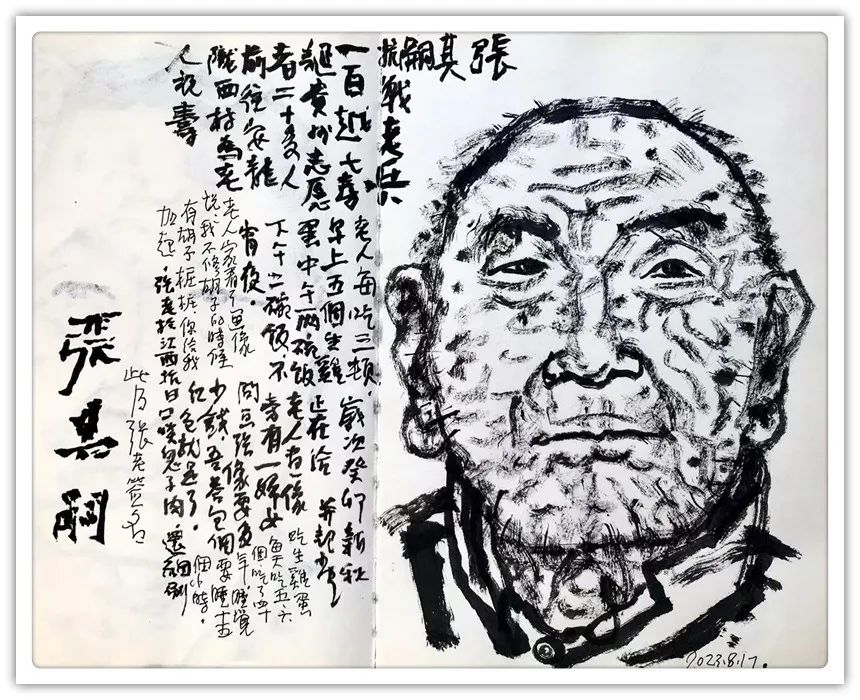 張其嗣
抗戰老兵
一百越七壽
誕貴州志愿
者二十多人
前往安龍
隴西村為老
人祝壽
老人每吃三頓，
早上五個生雞
蛋中午兩碗飯
下午二碗飯，不
宵夜。
歲次癸卯新秋
并記
正在給
老人畫像
旁有一婦女
問 張像要多
少錢，吾答包個
紅色就足了。
吃生雞蛋
每天吃五六
個吃了四十
年睡覺
要睡十
個小時。
老人家看了畫像
說：我不修胡子的時候
有胡子楂楂，你給我
加起，張老於江西抗日口啖鬼子肉
此乃張老簽名
張其嗣
2023.8.17.